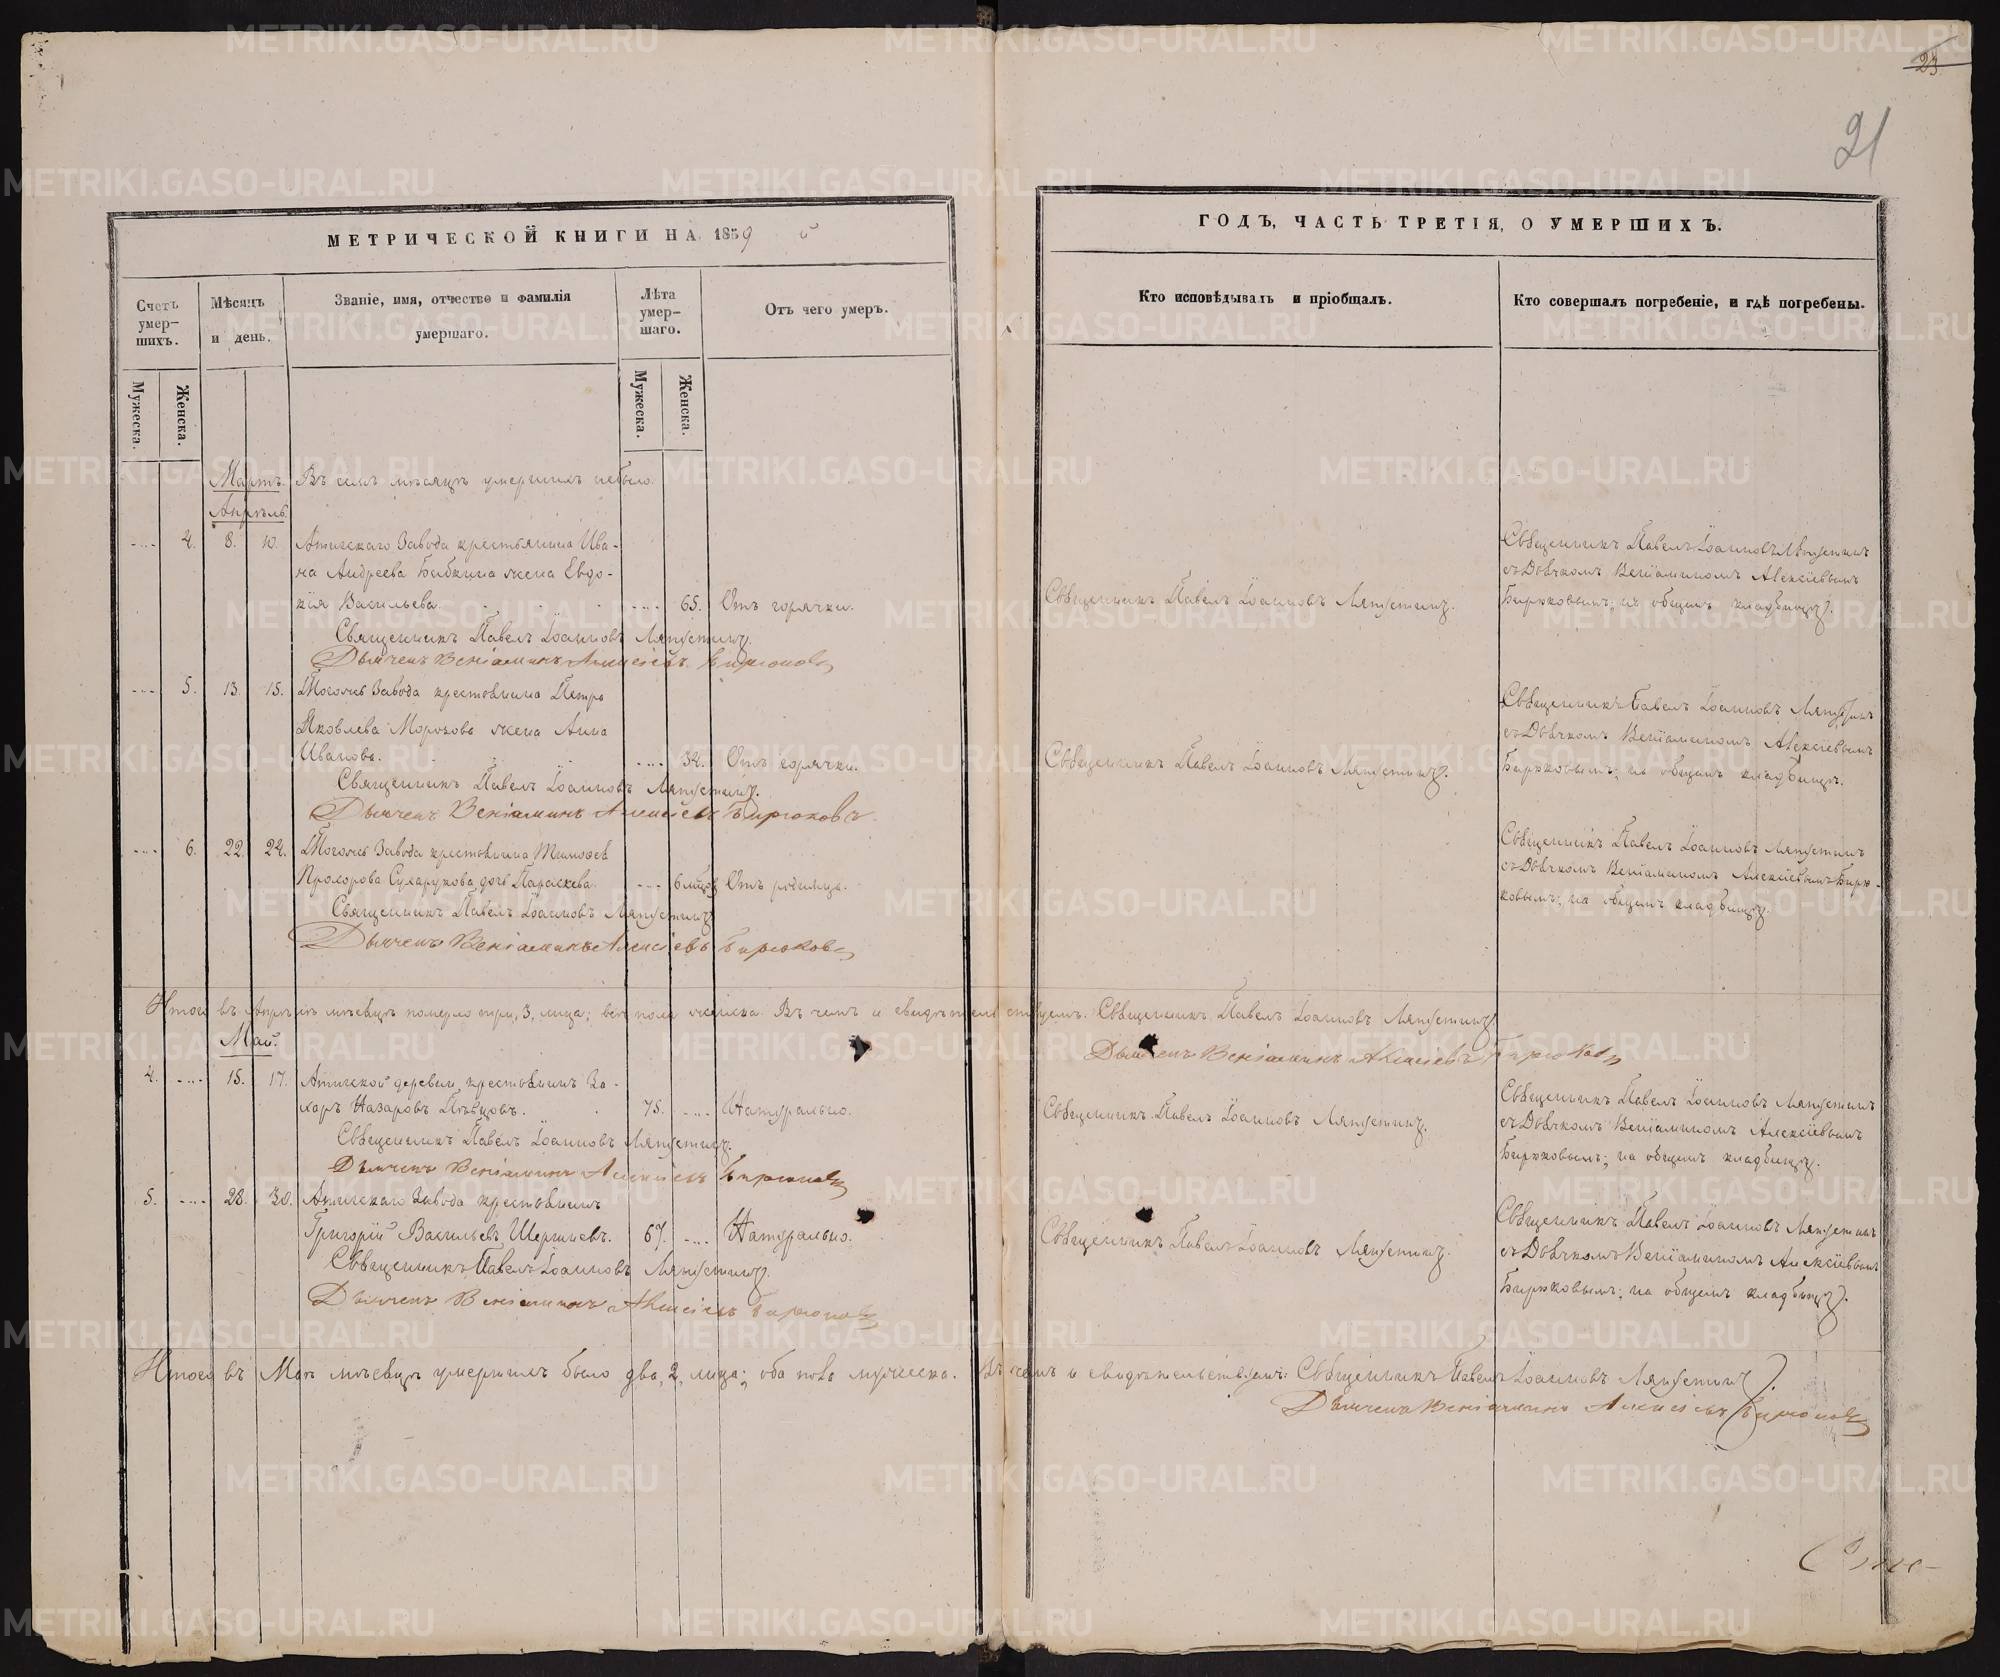 23
21
МЕТРИЧЕСКОЙ КНИГИ НА 1859
ГОДЪ, ЧАСТЬ ТРЕТІЯ, О УМЕРШИХЪ.
Счетъ умер-
шихъ.
Мѣсяцъ
и день.
Званіе, имя, отчество и фамилія
умершаго.
Лѣта
умер-
шаго.
Отъ чего умеръ.
Кто исповѣдывалъ и пріобщалъ.
Кто совершалъ погребеніе, и гдѣ погребены.
Мужеска.
Женска.
Мужеска.
Женска.
Мартъ. Въ семъ мѣсяцѣ умершихъ небыло.
Апрѣль.
4. 8. 10. Атигскаго Завода крестьянина Ива-
на Андреева Бабкина жена Евдо-
кія Васильева. 65. Отъ горячки.
Священникъ Павелъ Іоанновъ Ляпустинъ.
Дьячекъ Веніаминъ Алексіевъ Бирюковъ
Священникъ Павелъ Іоанновъ Ляпустинъ.
Священникъ Павелъ Іоанновъ Ляпустинъ
съ Дьячкомъ Веніаминомъ Алексіевымъ
Бирюковымъ; на общемъ кладбищѣ.
5. 13. 15. Тогожъ Завода крестьянина Петра
Яковлева Морозова жена Анна
Иванова. 34. Отъ горячки.
Священникъ Павелъ Іоанновъ Ляпустинъ.
Дьячекъ Веніаминъ Алексіевъ Бирюковъ
Священникъ Павелъ Іоанновъ Ляпустинъ.
Священникъ Павелъ Іоанновъ Ляпустинъ
съ Дьячкомъ Веніаминомъ Алексіевымъ
Бирюковымъ; на общемъ кладбищѣ.
6. 22. 24. Тогожъ Завода крестьянина Тимофея
Прохорова Сухарукова дочь Параскева. 6 мѣсяц. Отъ родимца.
Священникъ Павелъ Іоанновъ Ляпустинъ
Дьячекъ Веніаминъ Алексіевъ Бирюковъ
Священникъ Павелъ Іоанновъ Ляпустинъ
съ Дьячкомъ Веніаминомъ Алексіевымъ Бирю-
ковымъ; на общемъ кладбищѣ.
Итого въ Апрѣлѣ мѣсяцѣ померло три, 3, лица; всѣ пола женска. Въ чемъ и свидѣтельствуемъ: Священникъ Павелъ Іоанновъ Ляпустинъ
Дьячекъ Веніаминъ Алексіевъ Бирюковъ
Май.
4. 15. 17. Атигской деревни крестьянинъ За-
харъ Назаровъ Пѣвцовъ. 75. Натурально.
Священникъ Павелъ Іоанновъ Ляпустинъ.
Дьячекъ Веніаминъ Алексіевъ Бирюковъ
Священникъ Павелъ Іоанновъ Ляпустинъ.
Священникъ Павелъ Іоанновъ Ляпустинъ
съ Дьячкомъ Веніаминомъ Алексіевымъ
Бирюковымъ; на общемъ кладбищѣ.
5. 28. 30. Атигскаго Завода крестьянинъ
Григорій Васильевъ Шершневъ. 67. Натурально.
Священникъ Павелъ Іоанновъ Ляпустинъ.
Дьячекъ Веніаминъ Алексіевъ Бирюковъ
Священникъ Павелъ Іоанновъ Ляпустинъ.
Священникъ Павелъ Іоанновъ Ляпустинъ
съ Дьячкомъ Веніаминомъ Алексіевымъ
Бирюковымъ; на общемъ кладбищѣ.
Итого въ Маѣ мѣсяцѣ умершихъ было два, 2, лица; оба пола мужеска. Въ чемъ и свидѣтельствуемъ: Священникъ Павелъ Іоанновъ Ляпустинъ.
Дьячекъ Веніаминъ Алексіевъ Бирюковъ
METRIKI.GASO-URAL.RU